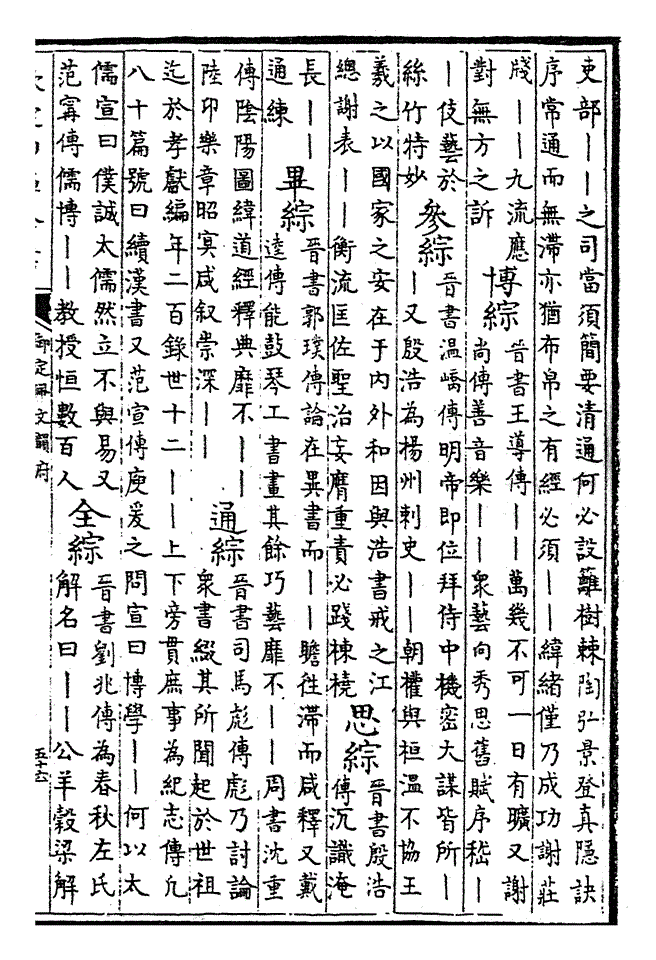 吏部――之司當須簡要清通何必設籬樹棘陶弘景登真隱訣
序常通而無滯亦猶布帛之有經必須――緯緒僅乃成功謝莊
牋――九流應
對無方之訴
博綜
晉書王導傳――萬幾不可一日有曠又謝
尚傳善音樂――衆藝向秀思舊賦序嵇―
―伎藝於
絲竹特妙
參綜
晉書温嶠傳明帝即位拜侍中機密大謀皆所―
―又殷浩為楊州刺史――朝權與桓温不協王
羲之以國家之安在于內外和因與浩書戒之江
總謝表――衡流匡佐聖治妄膺重責必踐棟橈
思綜
晉書殷浩
傳沉識淹
長――
通練
畢綜
晉書郭璞傳論在異書而――瞻徃滯而咸釋又戴
逵傳能鼓琴工書畫其餘巧藝靡不――周書沈重
傳陰陽圖緯道經釋典靡不――
陸卬樂章昭寘咸叙崇深――
通綜
晉書司馬彪傳彪乃討論
衆書綴其所聞起於世祖
迄於孝獻編年二百錄世十二――上下旁貫庶事為紀志傳凡
八十篇號曰續漢書又范宣傳庾爰之問宣曰博學――何以太
儒宣曰僕誠太儒然立不與易又
范寗傳儒博――教授恒數百人
全綜
晉書劉兆傳為春秋左氏
解名曰――公羊穀梁解
御定佩文韻府
五十六